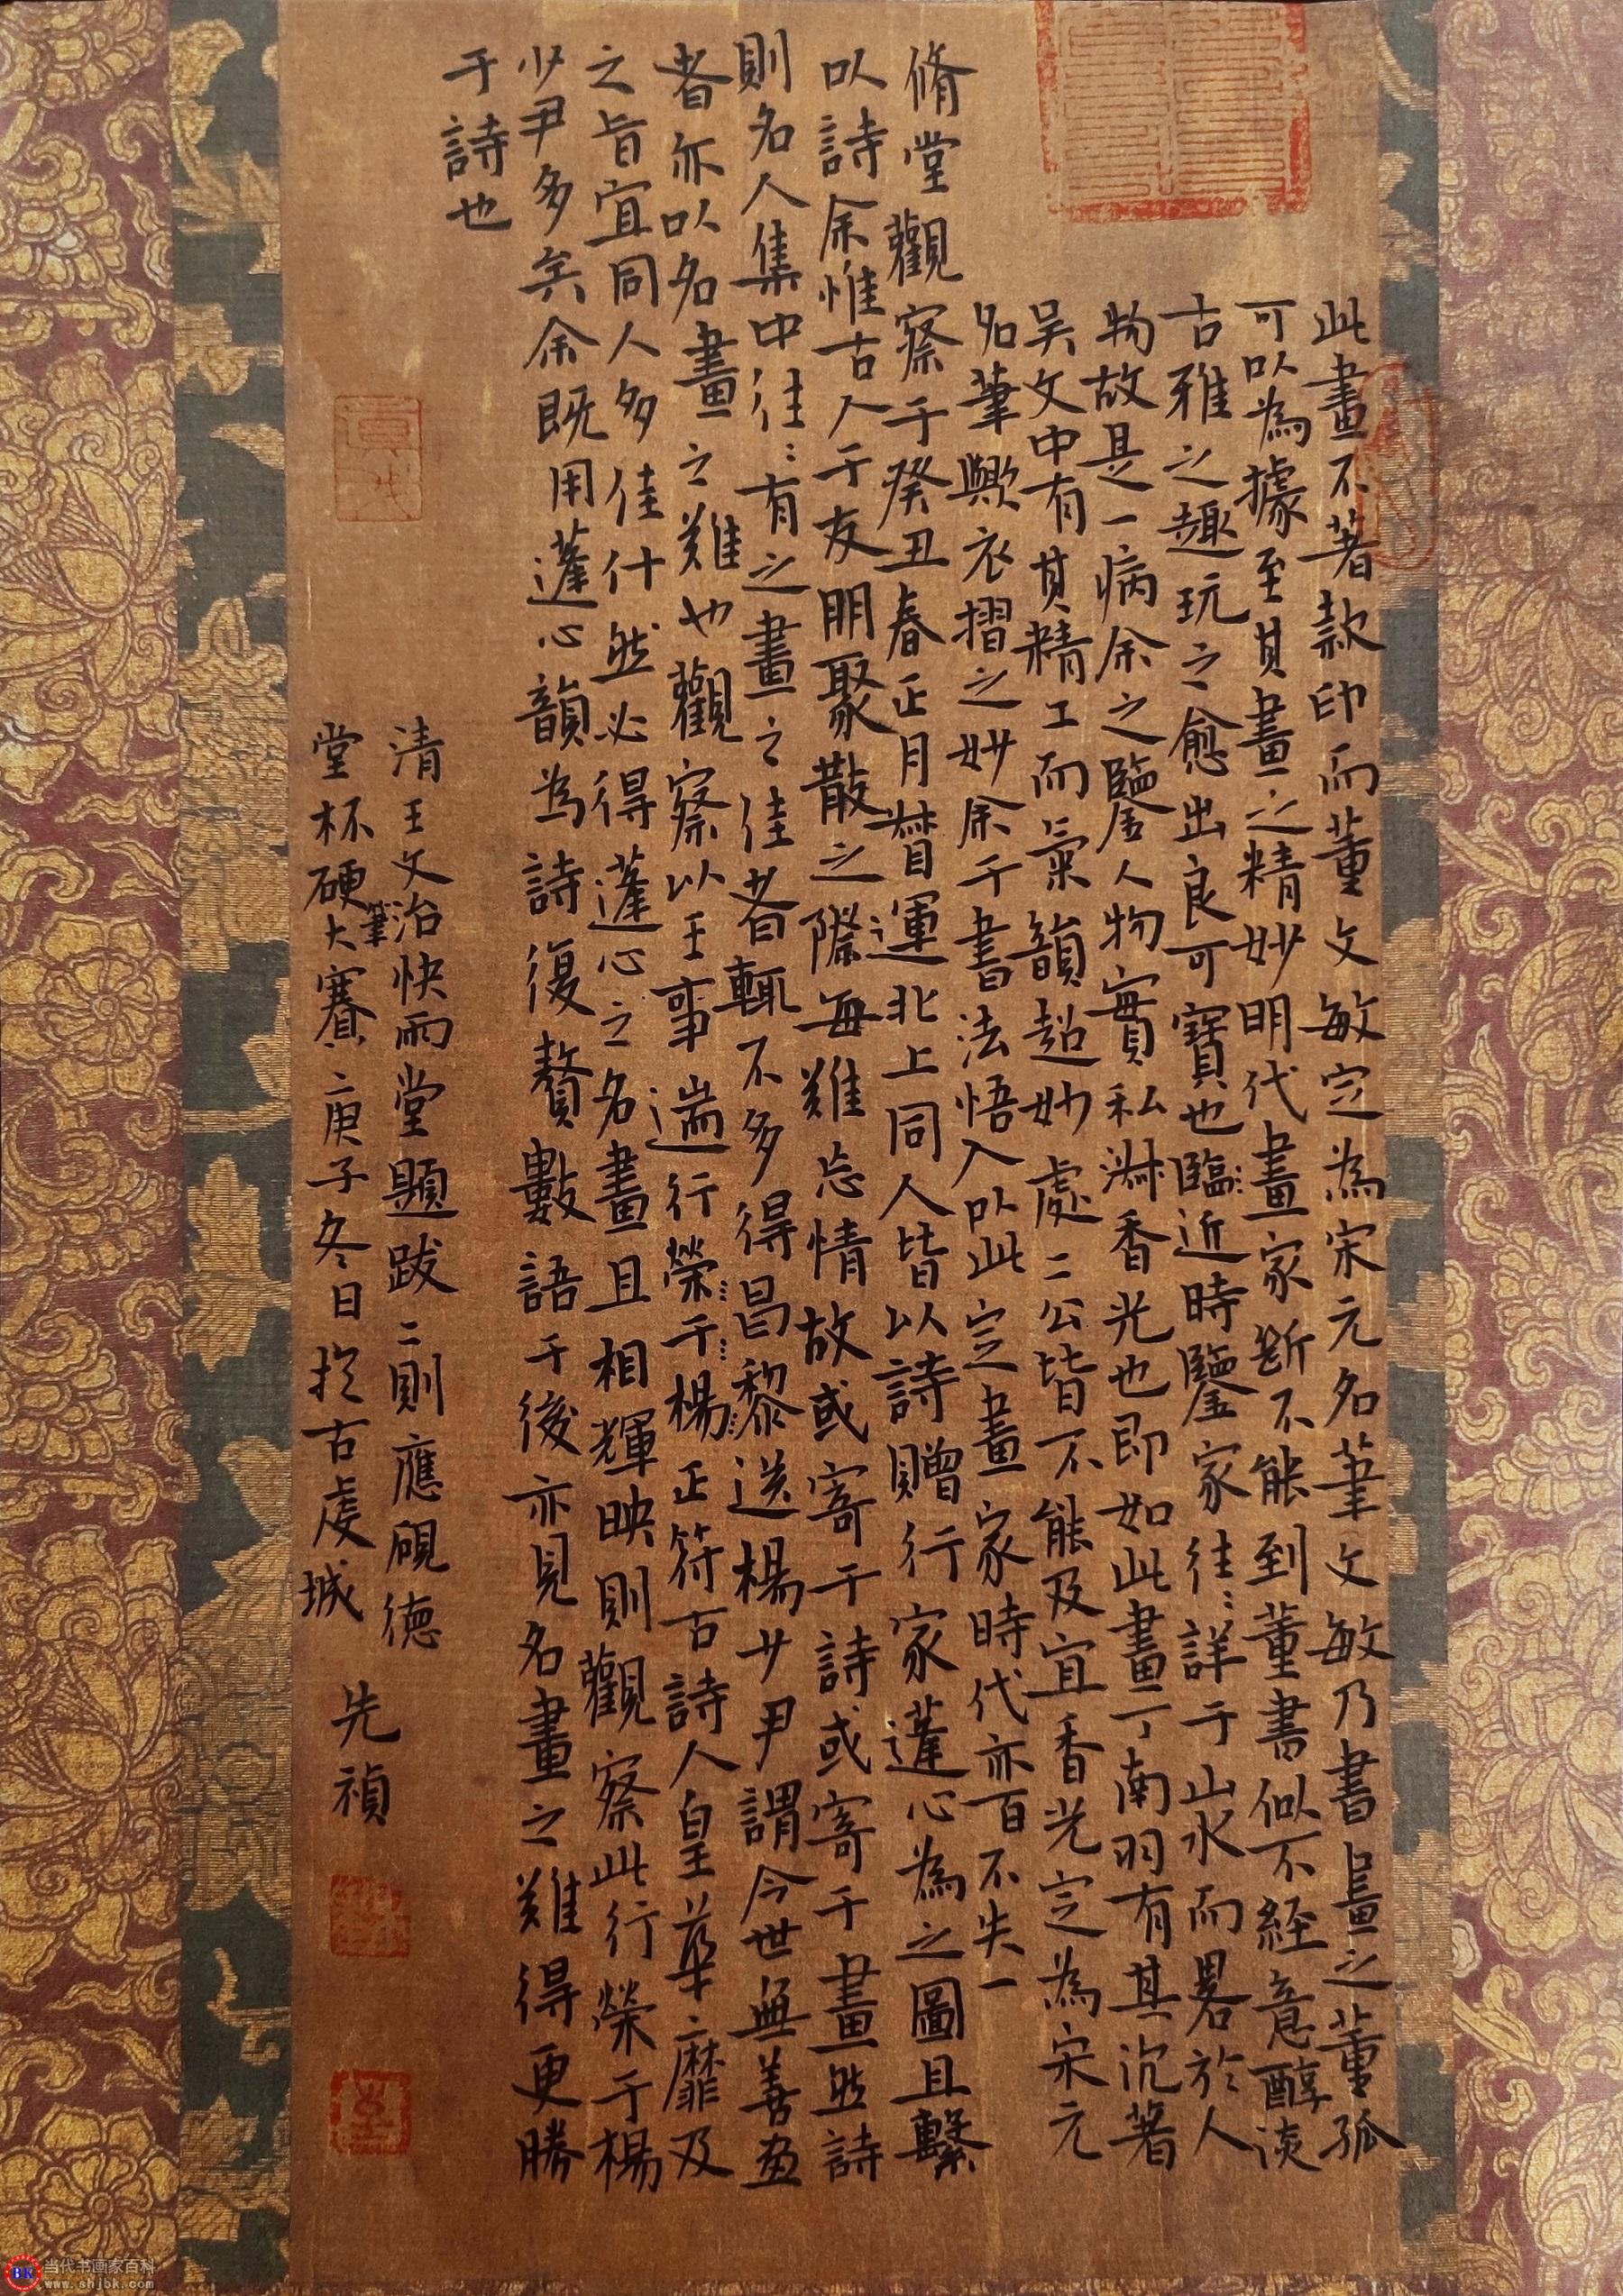 此畫不著款印而董文敏定為宋元名筆文敏乃書畫之董孤
可以為據至其畫之精妙明代畫家斷不能到董書似不經意醇淡
古雅之趣玩之愈出良可寶也臨近時鑒家往〻詳于山水而畧於人
物故是一病余之鑒人物實私淋香光也即如此畫丁南羽有其沉著
吴文中有其精工而氣韻超妙處二公皆不能及宜香光定為宋元
名筆歟衣摺之妙余于書法悟入以此定畫家時代亦百不失一
脩堂觀察于癸丑春正月督運北上同人皆以詩贈行家蓬心為之圖且繫
以詩余惟古人于友朋聚散之際每難忘情故或寄于詩或寄于畫然詩
則名人集中往〻有之畫之佳者輒不多得昌黎送楊少尹謂今世無善畫
者亦以名畫之難也觀察以王事遄行榮于楊正符古詩人皇華靡及
之旨宜同人多佳什然必得蓬心之名畫且相輝映則觀察此行榮于楊
少尹多矣余既用蓬心韻為詩復贅數語于後亦見名畫之難得更勝
于詩也
清王文治快雨堂題跋二則應硯德
堂杯硬筆大賽庚子冬日於古虔城
先禎
当代书画家百科
www.shjbk.com
BK